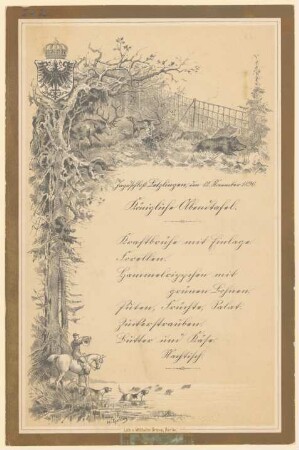 Jagdschloß Letzlingen, den 12. November 1896.
Königliche Abendtafel.
Kraftbrühe mit Einlage
Forellen.
Hammelrippchen mit
grünen Bohnen.
Puten, Früchte, Salat.
Zuckerstrauben.
Butter und Käse.
Nachtisch.
Lith. v. Wilhelm Greve, Berlin.